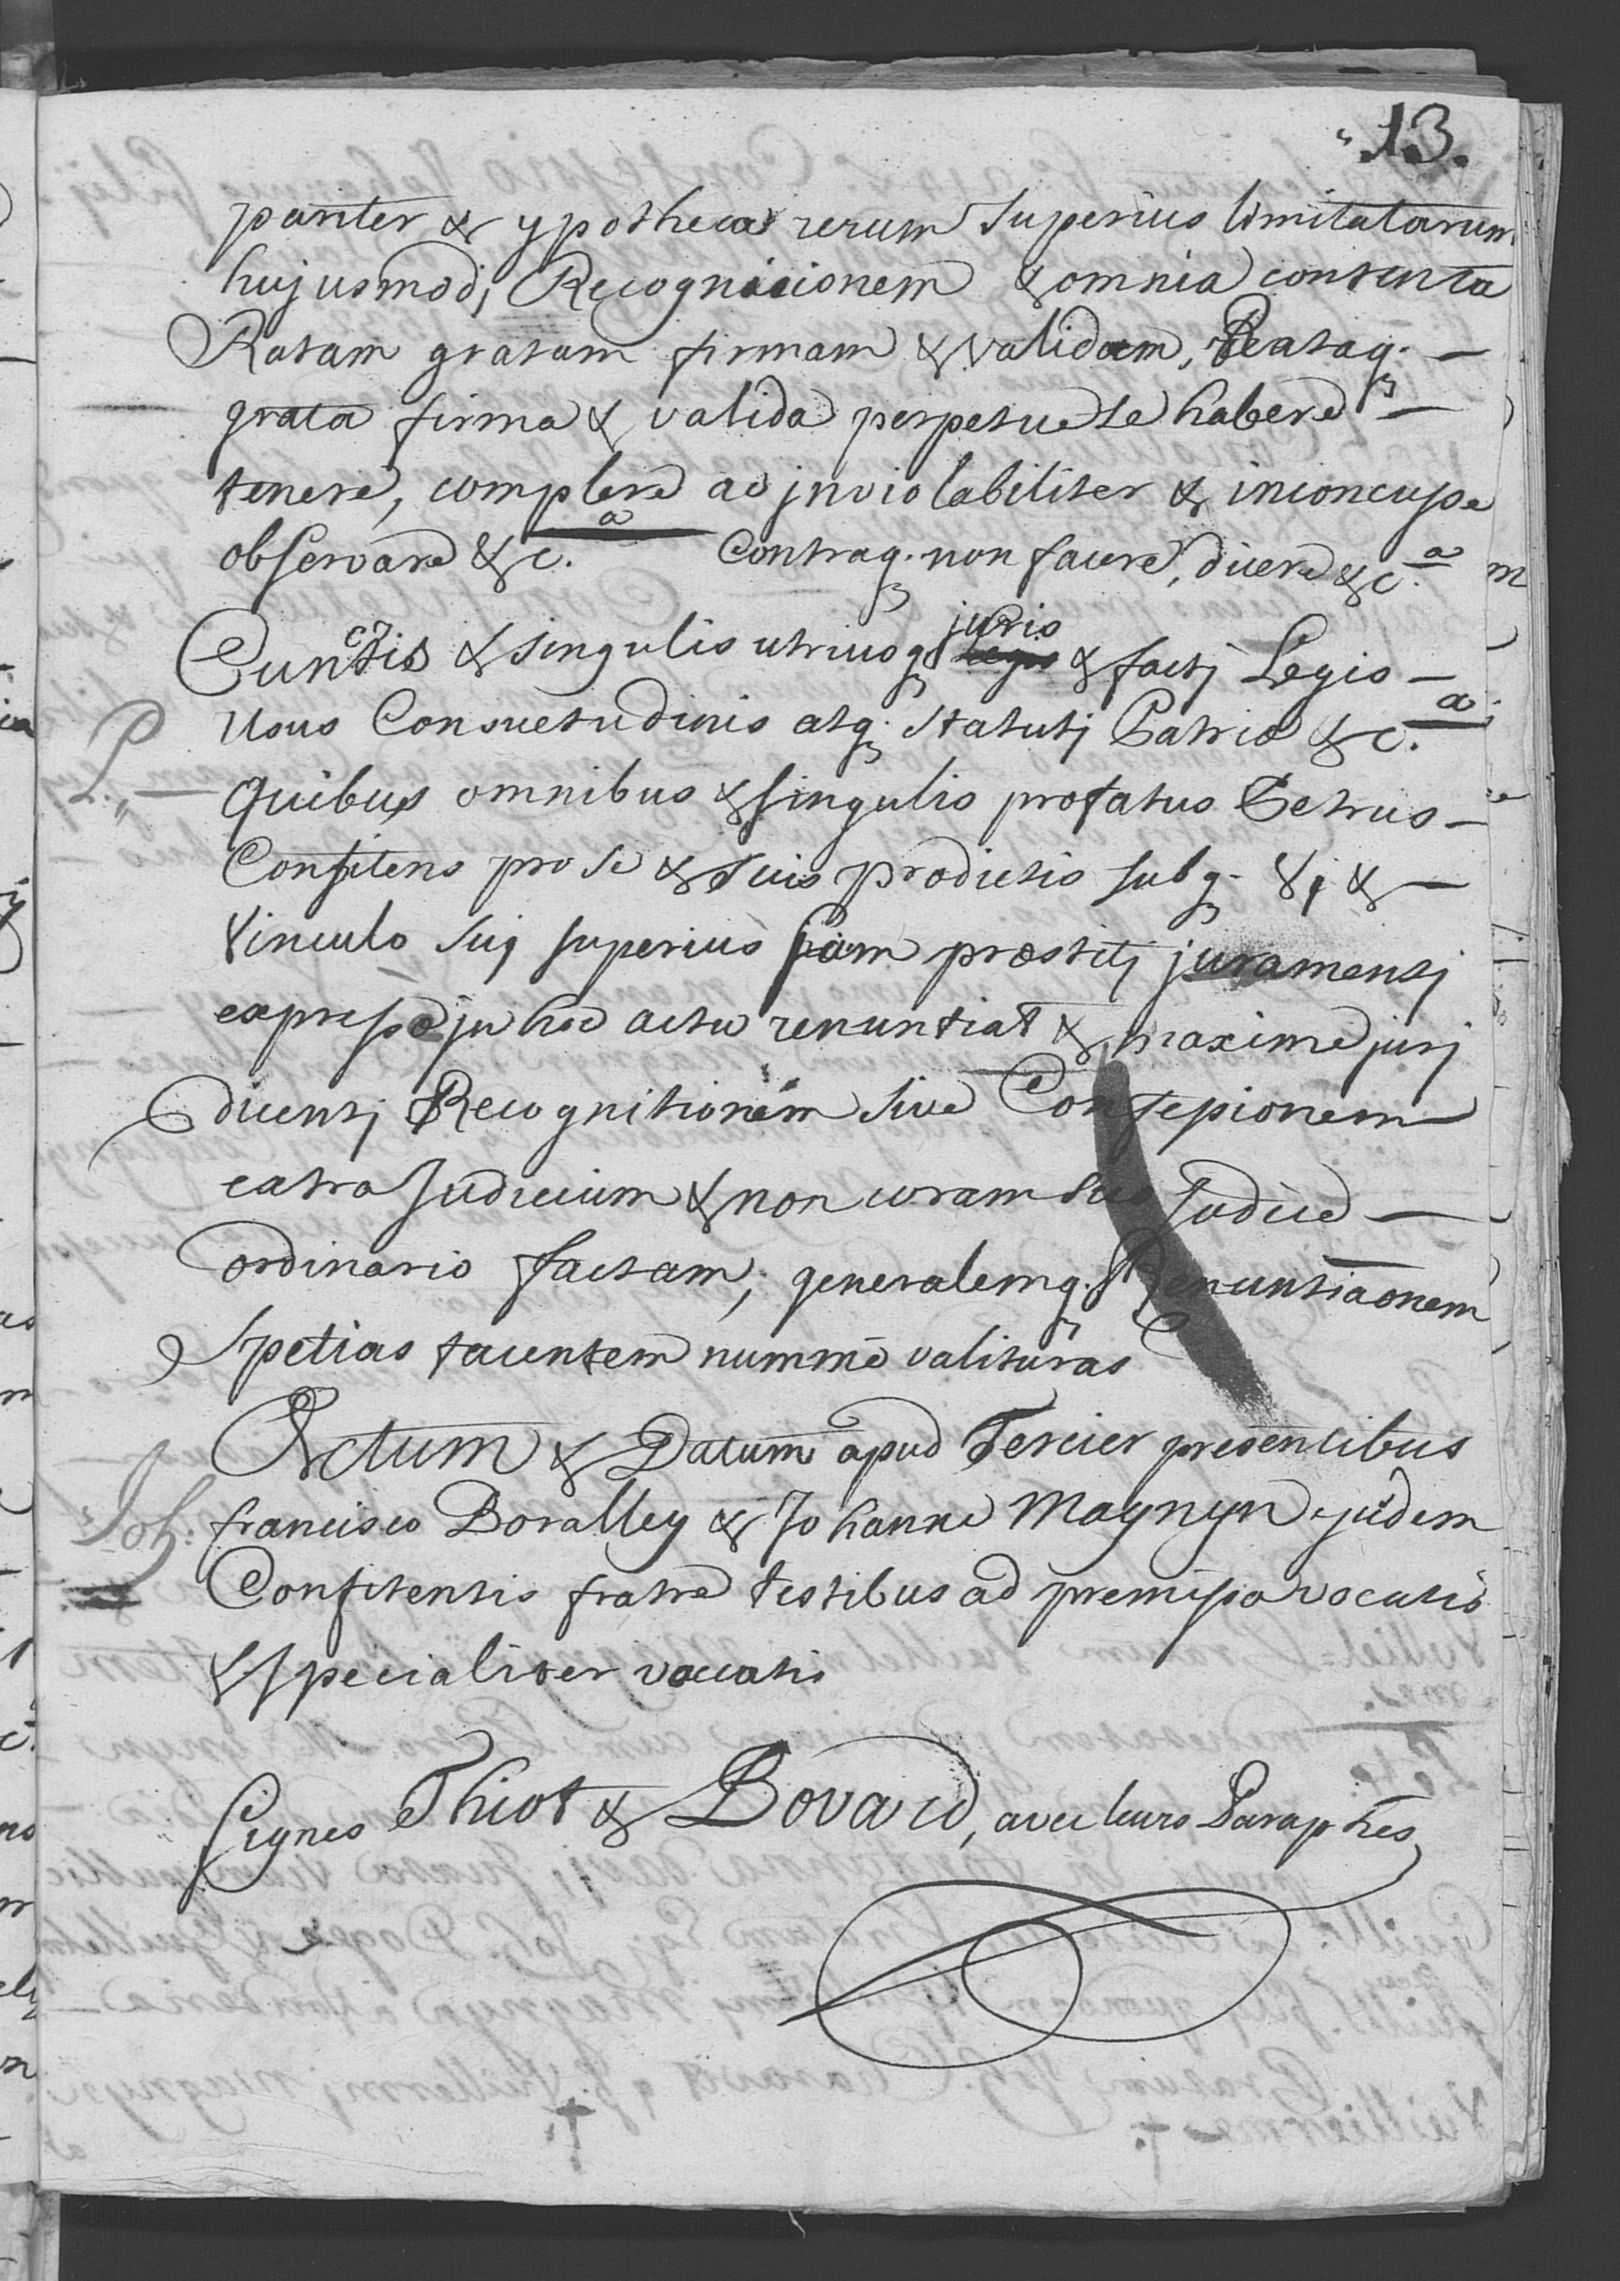 .13.
pariter & ypotheca rerum superius limitatarum
hujusmodj Recognicionem & omnia contenta
Ratam gratam firmam & validam, Rataq. —
grata firma & valida perpetue se habere —
tenere, complere ac jnviolabiliter & inconcusse
observare &c.a Contraq. non facere, dicere &c.a
Cunctis & singulis utriusq. juris & factj Legis —
Usus Consuetudinis atq. Statutj Patrie &c.a
quibus omnibus & singulis profatus Petrus —
Confitens pro se & suis prodictis subq. Vj & —
Vinculo suj superius jam prostitj juramentj
expresse jn hoc actu renuntiat & maxime jurj
dicentj Recognitionem sive Confessionem
extra Judicium & non coram suo Judice —
ordinario factam, generalemq. Renuntiaonem
spetias tacentem nummè valituras
Actum & Datum apud Tercier presentibus
Joh: francisco Boralley & Johanne Magnyn ejusdem
Confitentis fratre testibus ad premissa vocatis
& specialiter vocatis
Signes Thiot & Bovard, avec leurs Paraphes